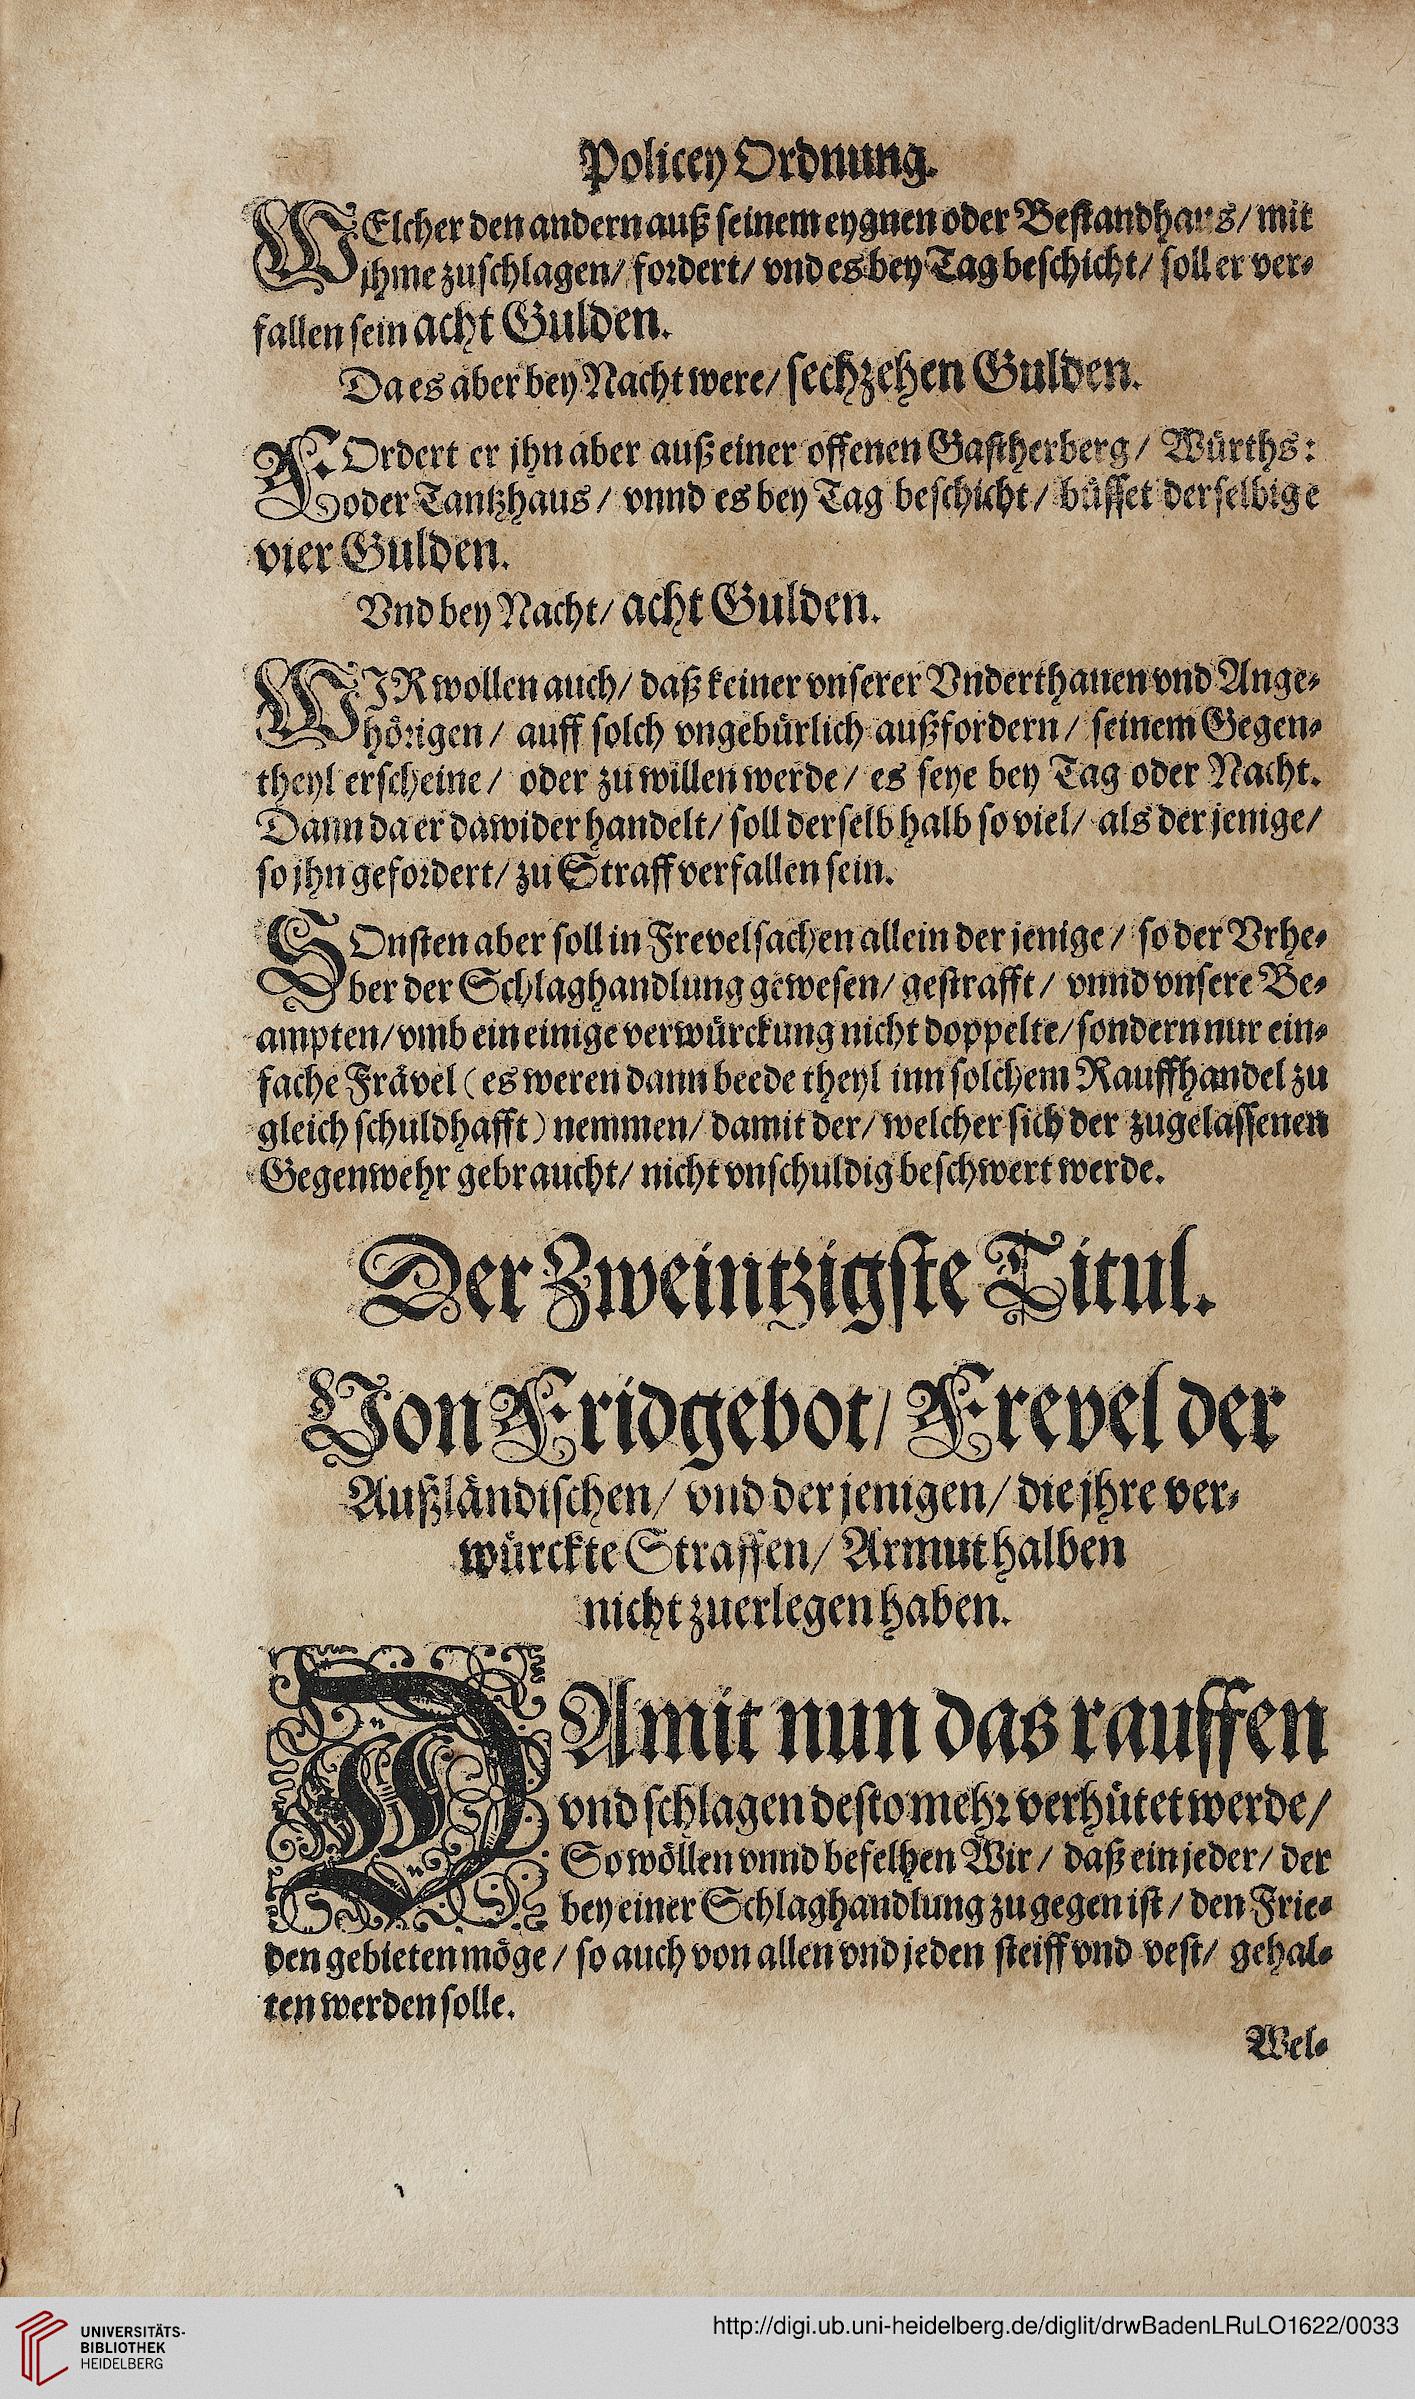 Policey Ordnung.
WElcher den andern auß seinem eygnen oder Bestandhaus/ mit
jhme zuschlagen/ fordert/ vnd es bey Tag beschicht/ soll er ver-
fallen sein acht Gulden.
Da es aber bey Nacht were/ sechzehen Gulden.
FOrdert er jhn aber auß einer offenen Gastherberg/ Würths:
oder Tantzhaus/ vnnd es bey Tag beschicht/ büsset derselbige
vier Gulden.
Vnd bey Nacht/ acht Gulden.
WIR wollen auch/ daß keiner vnserer Vnderthanen vnd Ange-
hörigen/ auff solch vngebürlich außfordern/ seinem Gegen-
theyl erscheine/ oder zu willen werde/ es seye bey Tag oder Nacht.
Dann da er dawider handelt/ soll derselb halb so viel/ als der jenige/
so jhn gefordert/ zu Straff verfallen sein.
SOnsten aber soll in Frevelsachen allein der jenige/ so der Vrhe-
ber der Schlaghandlung gewesen/ gestrafft/ vnnd vnsere Be-
ampten/ vmb ein einige verwürckung nicht doppelte/ sondern nur ein-
fache Frävel (es weren dann beede theyl inn solchem Rauffhandel zu
gleich schuldhafft) nemmen/ damit der/ welcher sich der zugelassenen
Gegenwehr gebraucht/ nicht vnschuldig beschwert werde.
Der Zweintzigste Titul.
Von Fridgebot/ Frevel der
Außländischen/ vnd der jenigen/ die jhre ver-
würckte Straffen/ Armut halben
nicht zuerlegen haben.
DAmit nun das rauffen
vnd schlagen desto mehr verhütet werde/
So wöllen vnnd befelhen Wir/ daß ein jeder/ der
bey einer Schlaghandlung zu gegen ist/ den Frie-
den gebieten möge/ so auch von allen vnd jeden steiff vnd vest/ gehal-
ten werden solle.
Wel-
UNIVERSITÄTS-
BIBLIOTHEK
HEIDELBERG
http://digi.ub.uni-heidelberg.de/diglit/drwBadenLRuLO1622/0033